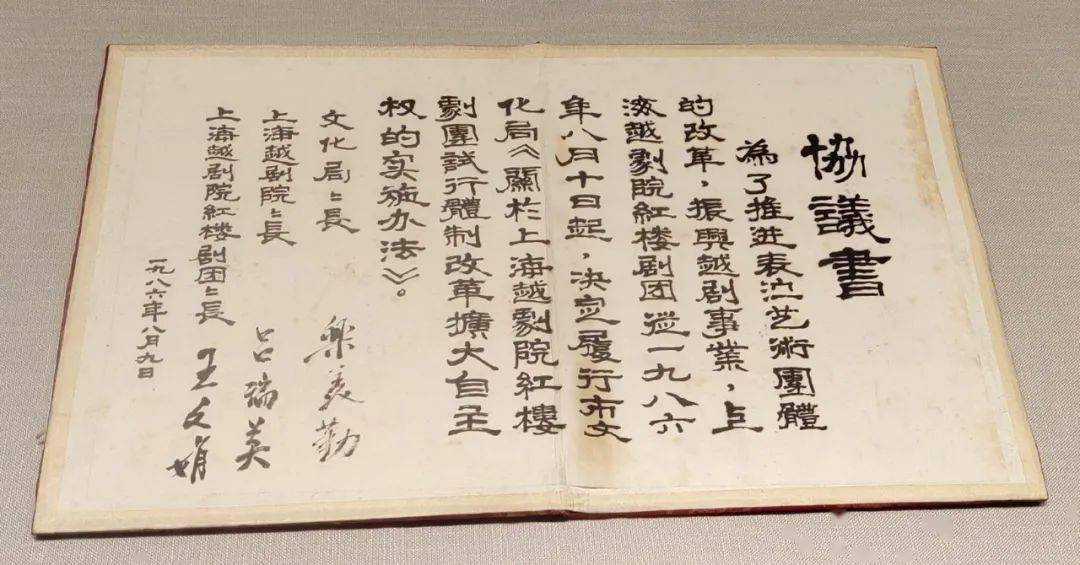 協議書
為了推进表演艺術團體
的改革，振興越剧事業，上
海越劇院紅楼剧团從一九八六
年八月十日起，决定履行市文
化局《關於上海越劇院紅樓
劇團試行體制改革擴大自主
权的实施办法》。
文化局〻長 乐美勤
上海越剧院〻長 吕瑞英
上海越剧院紅楼剧团〻長 王文娟
一九八六年八月九日